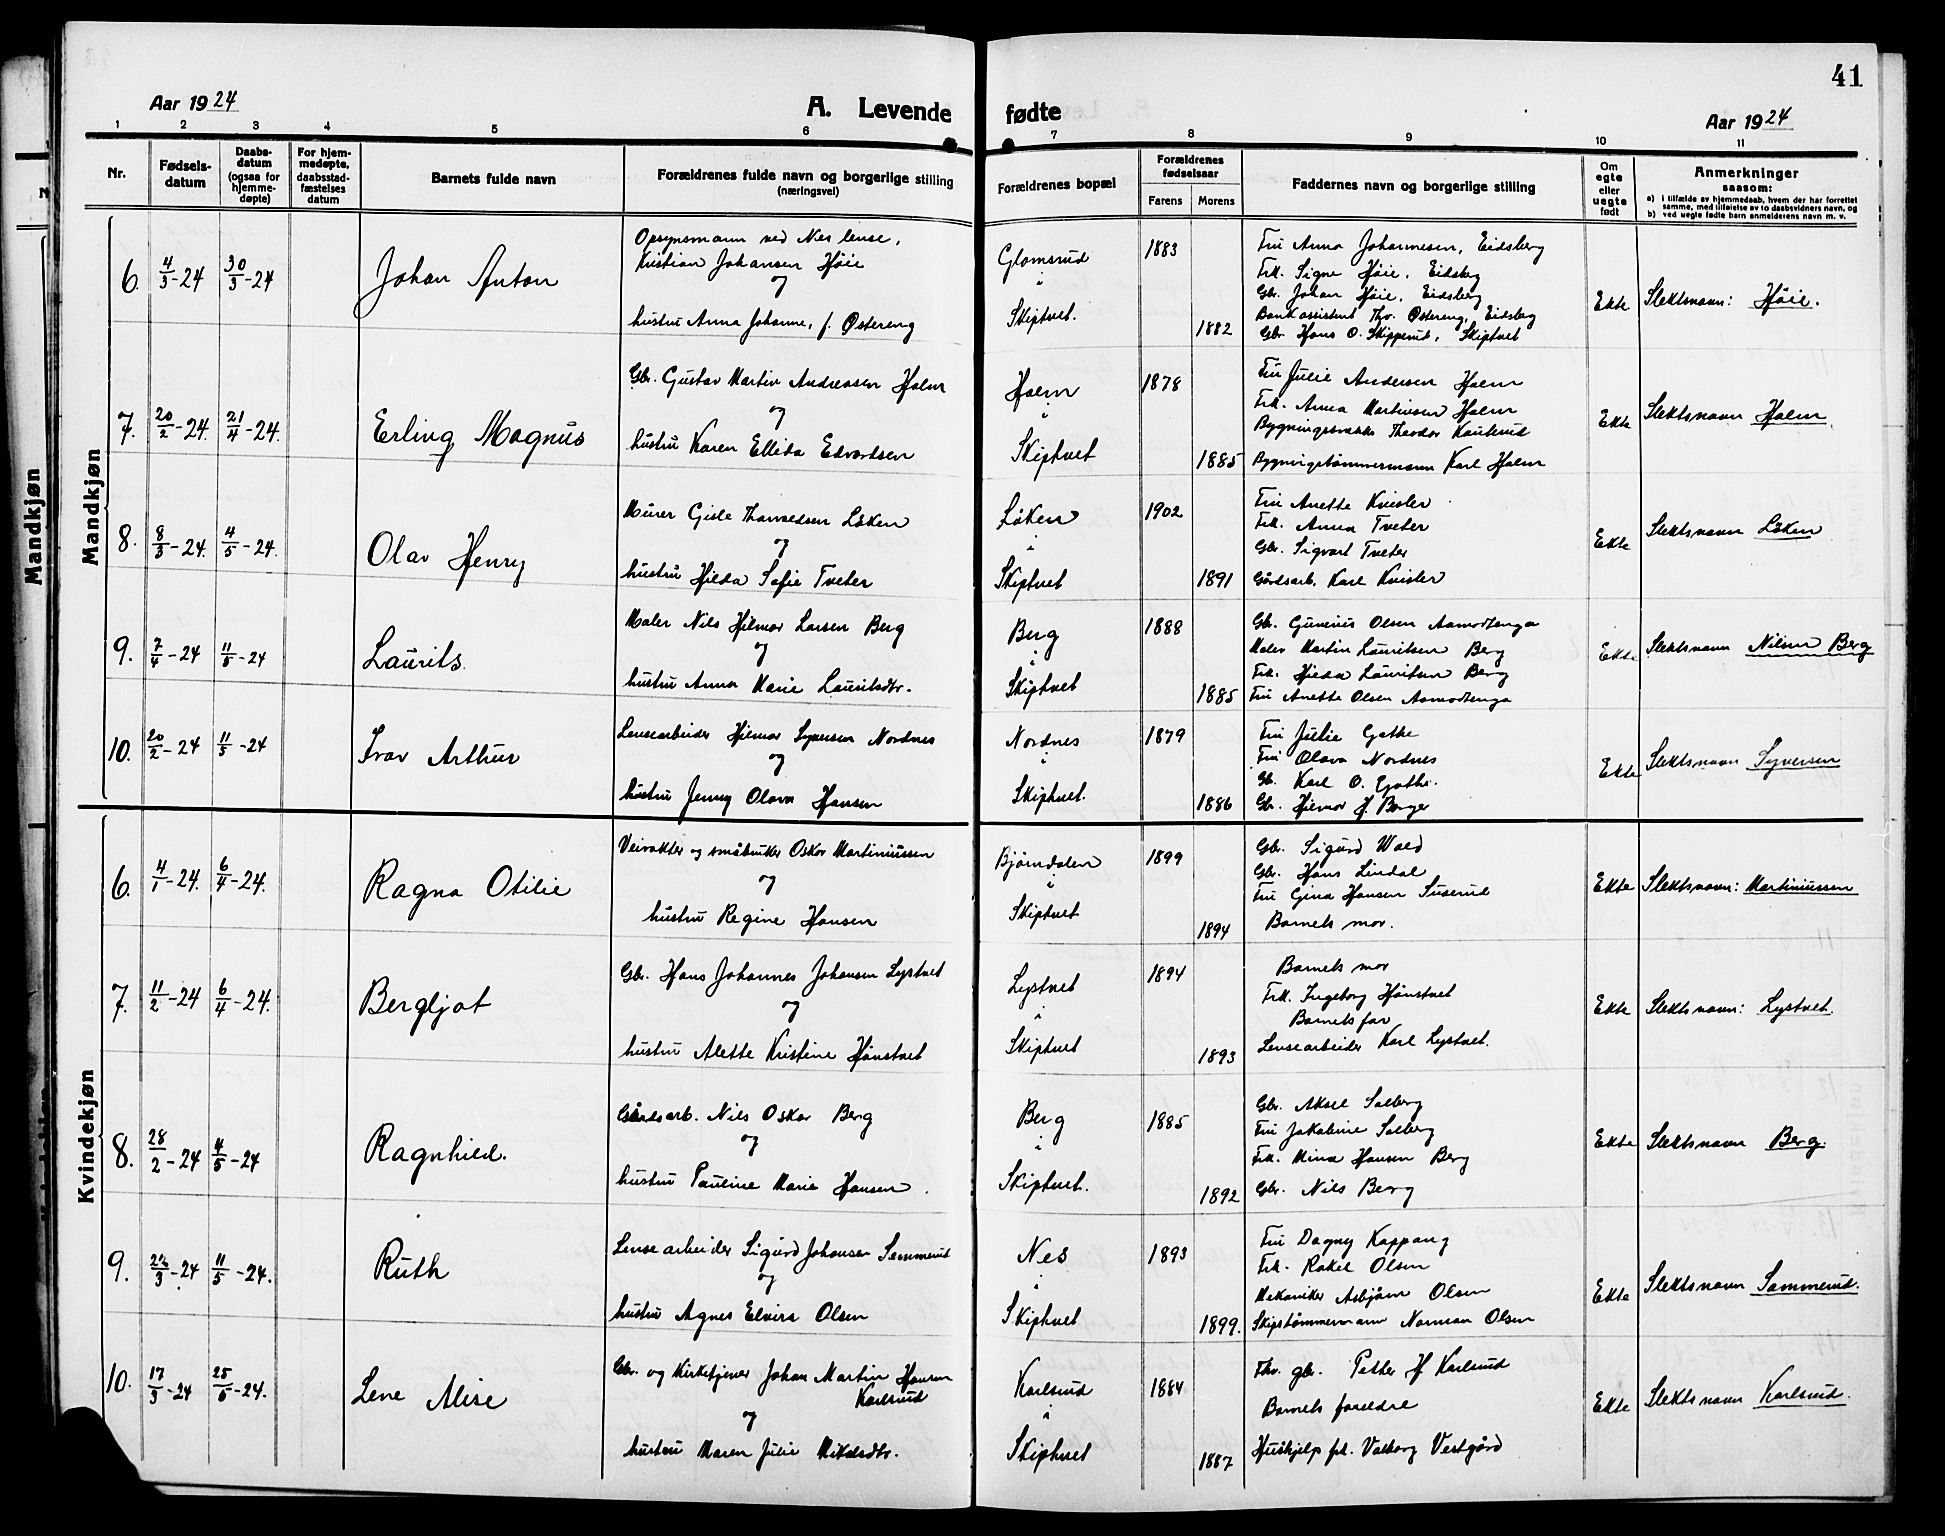 41
Aar 1924
A. Levende fødte
Aar 1924
1 2 3 4 5 6 7 8 9 10 11
Nr.
Fødsels-
datum
Daabs-
datum
(ogsaa for
hjemme-
døpte)
For hjem-
medøpte,
daabsstad-
fæstelses
datum
Barnets fulde navn
Forældrenes fulde navn og borgerlige stilling
(næringsvei)
Forældrenes bopæl
Forældrenes
fødselsaar
Farens Morens
Faddernes navn og borgerlige stilling
Om
egte
eller
uegte
født
Anmerkninger
saasom:
a) i tilfælde av hjemmedaab, hvem der har forrettet
samme, med tilføielse av to daabsvidners navn, og
b) ved uegte fødte barn anmelderens navn m. v.
Mandkjøn
Mandkjøn
6. 4/3-24 30/3-24 Johan Anton
Opsynsmann ved Nes lense,
Kristian Johansen Høie
og
hustru Anna Johanne, f. Østereng
Glomsrud
i
Skiptvet.
1883
1882
Fru Anna Johannesen, Eidsberg
Frk. Signe Høie, Eidsbg
Gbr. Johan Høie, Eidsberg
Bankassistent Thv. Østereng, Eidsbg
Gbr. Hans O. Skipperud, Skiptvet
Ekte
Slektsnavn: Høie.
7. 20/2-24. 21/4-24. Erling Magnus
Gbr. Gustav Martin Andreassen Holm
og
hustru Karen Ellida Edvardsen
Holm
i
Skiptvet
1878
1885
Fru Julie Andersen Holm
Frk. Anna Martinsen Holm
Theodor
Bygningstømmermann Karl Holm
Ekte
Slektsnavn Holm.
8. 8/3-24. 4/5-24. Olav Henry
Murer Gisle Løken
og
hustru Hilda Sofie Tveter
Løken
i
Skiptvet
1902
1891
Fru Anette Knisler
Frk. Anna Tveter
Gbr. Sigvart Tveter
Gårdsarb. Karl Knisler
Ekte
Slektsnavn Løken
9. 7/4-24 11/5-24 Laurits.
Maler Nils Hilmar Larsen Berg
og
hustru Anna Marie Lauritsdtr.
Berg
i
Skiptvet
1888
1885
Gbr. Gunerius Olsen Aamodtenga
Maler Martin Lauritsen Berg
Frk. Hilda Lauritsen Berg
Fru Anette Olsen Aamodtenga
Ekte
Slektsnavn Nilsen Berg
10. 20/2-24 11/5-24 Ivar Arthur
Lensearbeider Hilmar Syversen Nordnes
og
hustru Jenny Olava Hansen
Nordnes
i
Skiptvet.
1879
1886
Fru Julie Gathe
Fru Olava Nordnes
Gb. Karl O. Gathe.
Gb. Hilmar H. Borger
Ekte
Slektsnavn Syversen
Kvindekjøn
6. 4/1-24. 6/4-24. Ragna Otilie
Veivokter og småbruker Oskar Martiniussen
og
hustru Regine Hansen
Bjørndalen
i
Skiptvet
1899
1894
Gbr. Sigurd Wold
Gbr. Hans Lindal
Fru Gina Hansen Suserud
Barnets mor.
Ekte
Slektsnavn: Martiniussen
7. 11/2-24 6/4-24. Bergljot
Gbr. Hans Johannes Johansen Lystvet
og
hustru Alette Kristine Hønstvet
Lystvet
i
Skiptvet
1894
1893
Barnets mor
Frk. Ingeborg Hønstvet
Barnets far
Lensearbeider Karl Lystvet.
Ekte
Slektsnavn: Lystvet.
8. 28/2-24 4/5-24 Ragnhild.
Gårdsarb. Nils Oskar Berg
og
hustru Pauline Marie Hansen.
Berg
i
Skiptvet.
1885
1892
Gbr. Aksel Solberg
Fru Jakobine Solberg
Frk. Mina Hansen Berg
Gbr. Nils Berg
Ekte
Slektsnavn Berg.
9. 3-24 11/5-24. Ruth
Lensearbeider Sigurd Johansen Sommerud
og
hustru Agnes Elvira Olsen
Nes
i
Skiptvet
1893
1899.
Fru Dagny Kappang
Frk. Rakel Olsen
Mekaniker Asbjørn Olsen
Skipstømmermann Norman Olsen
Ekte
Slektsnavn Sommerud.
10. 17/3-24 25/5-24. Lene Alise
Gbr. og Kirketjener Johan Martin Hansen
Karlsrud
og
hustru Maren Julie Mikalsdtr.
Karlsrud
i
Skiptvet
1884
1887
Fhv. gbr. Petter H Karlsrud
Barnets foreldre
Hushjelp frk. Valborg Vestgård
Ekte
Slektsnavn Karlsrud.